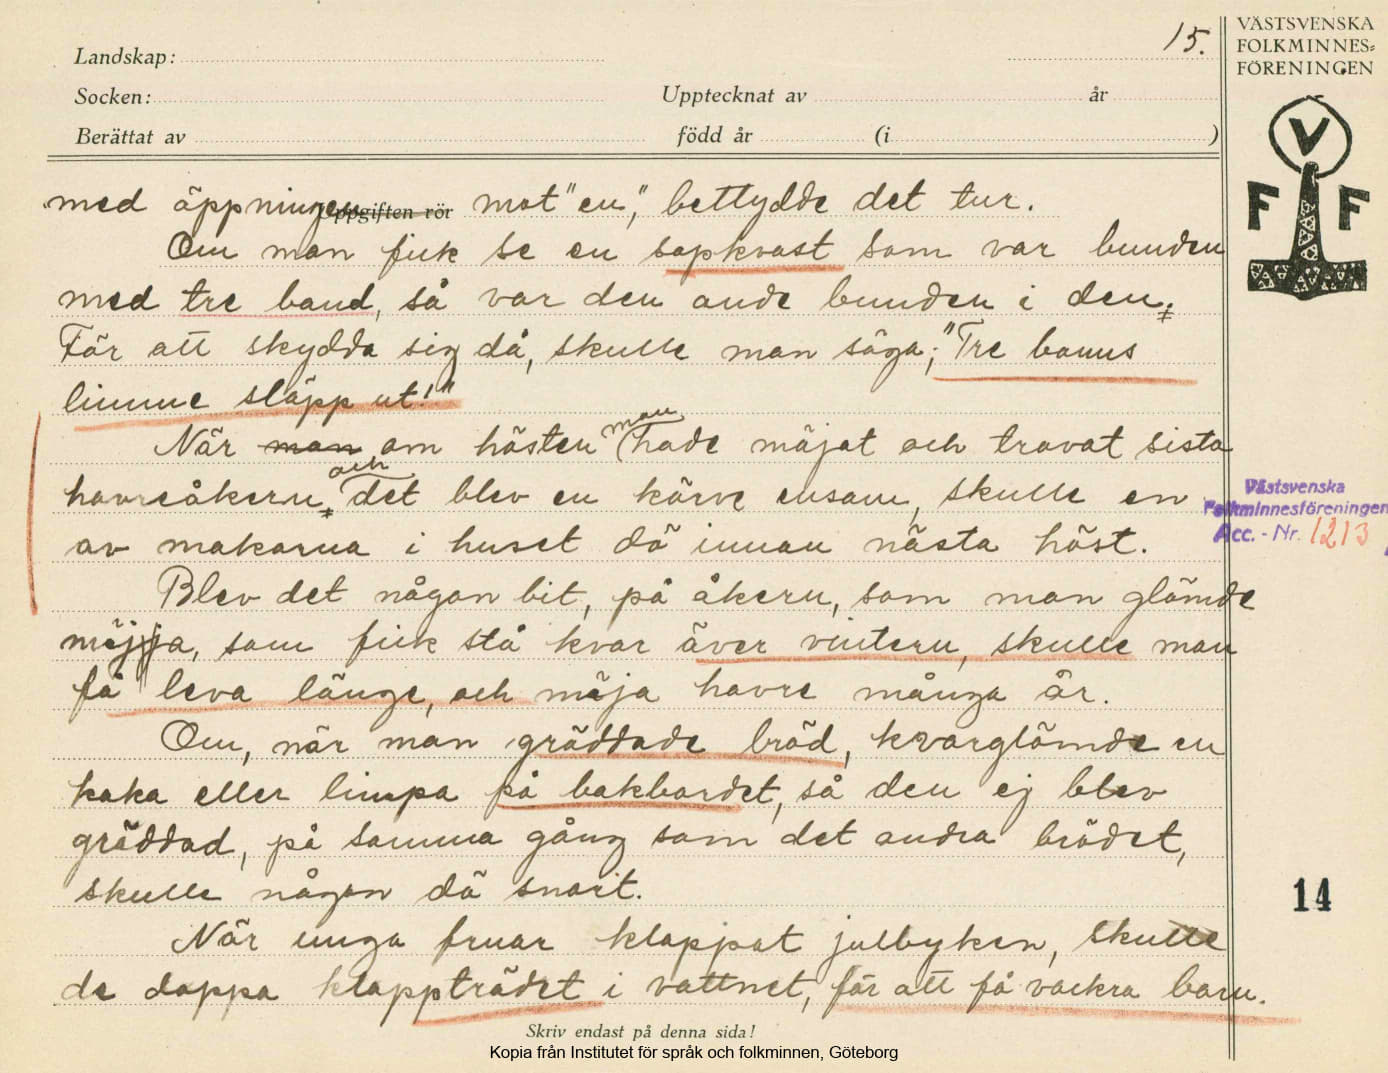 15.
VÄSTSVENSKA
FOLKMINNES=
FÖRENINGEN
Landskap:
Socken:
Upptecknat av år
Berättat av född år (i )
V
F F
med öppningen Uppgiften rör mot "en", bettydde det tur.
Om man fick se en sopkvast som var bunden
med tre band, så var den onde bunden i den.
För att skydda sig då, skulle man säga; "Tre bouns
linnne släpp ut!"
När man om hösten man hade möjat och travat sista
havreåkern, och det blev en kärve ensam, skulle en
av makarna i huset dö innan nästa höst.
Blev det någon bit, på åkern, som man glömde
möjja, som fick stå kvar över vintern, skulle man
få leva länge, och möja havre många år.
Om, när man gräddade bröd, kvarglömde en
kaka eller limpa på bakbordet, så den ej blev
gräddad, på samma gång som det andra brödet,
skulle någon dö snart.
När unga fruar klappat julbyken, skulle
de doppa klappträdet i vattnet, för att få vackra barn.
Västsvenska
Folkminnesföreningen
Acc. - Nr. 1213
14
Skriv endast på denna sida!
Kopia från Institutet för språk och folkminnen, Göteborg